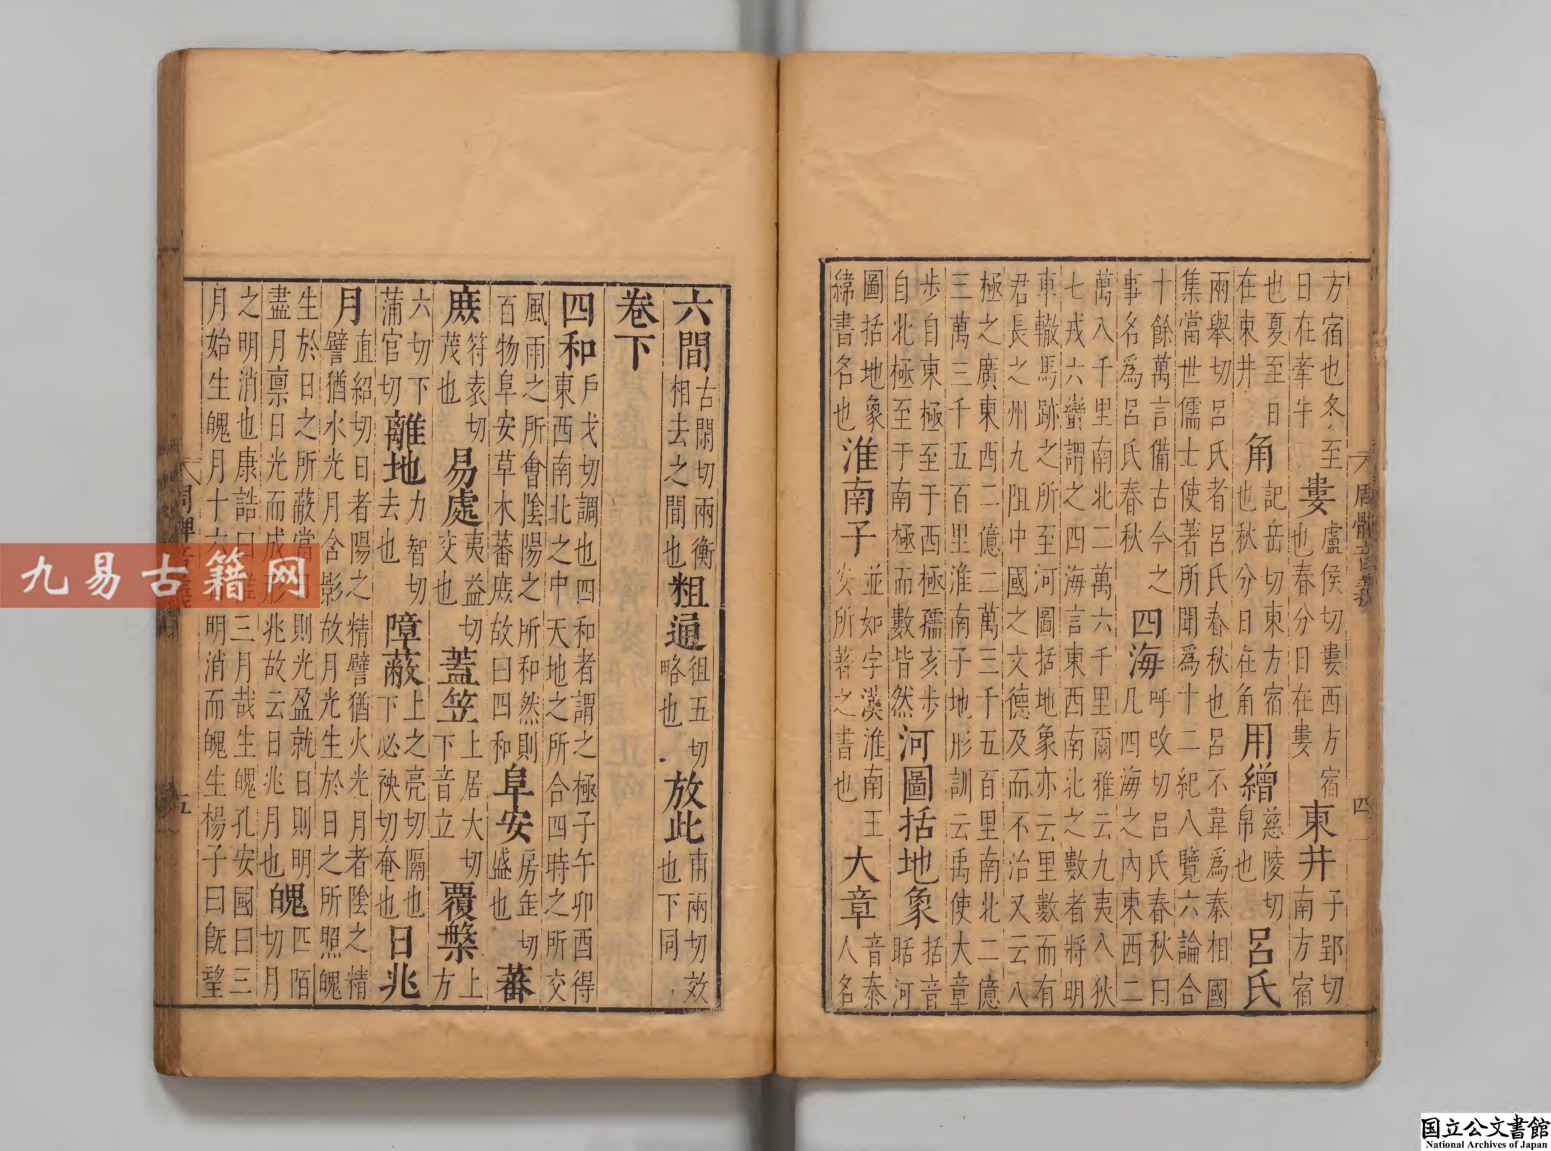 方宿也冬至日在牽牛婁盧侯切婁西方宿也春分日在婁東井子郢切南方宿
也夏至日在東井角記岳切東方宿也秋分日在角用繒慈陵切帛也呂氏
兩舉切呂氏者呂氏春秋也呂不韋為秦相國
集當世儒士使著所聞為十二紀八覽六論合
十餘萬言備古今之事名為呂氏春秋四海呼改切呂氏春秋曰凡四海之內東西二
萬八千里南北二萬六千里爾雅云九夷八狄
七戎六蠻謂之四海言東西南北之數者將明
車轍馬跡之所至河圖括地象亦云里數而有
君長之州九阻中國之文德及而不治又云八
極之廣東西二億三萬三千五百里南北二億
三萬三千五百里淮南子地形訓云禹使大章
步自東極至于西極孺亥步自北極至于南極而數皆然河圖括地象括音聒河
圖括地象緯書名也淮南子並如字漢淮南王安所著之書也大章音泰人名
四
六間古閑切兩衡相去之間也粗通徂五切略也放此甫兩切效也下同
卷下
四和戶戈切調也四和者謂之極子午卯酉得東西南北之中天地之所合四時之所交
風雨之所會陰陽之所和然則百物阜安草木蕃庶故曰四和阜安房缶切盛也蕃
庶符袁切茂也易處夷益切交也蓋笠上居大切下音立覆槃上方
六切下蒲官切離地力智切去也障蔽上之亮切隔也下必袂切奄也日兆
月直紹切日者陽之精譬猶火光月者陰之精譬猶水光月含影故月光生於日之所照魄
生於日之所蔽當則光盈就日則明盡月稟日光而成形兆故云日兆月也魄匹陌切月
之明消也康誥曰三月哉生魄孔安國曰三
月始生魄月十明消而魄生楊子曰旣望
五
九易古籍网
国立公文書館
National Archives of Japan